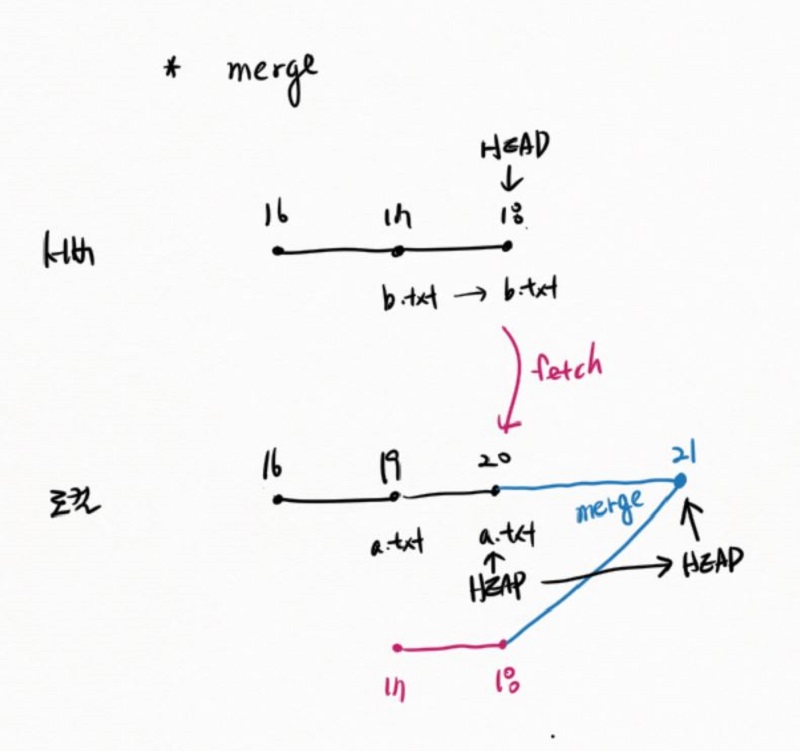 * merge
HEAD
↓
16 17 18
서버
b.txt → b.txt
fetch
16 19 20 21
로컬
merge
a.txt a.txt
↑ ↑
HEAD → HEAD
17 18